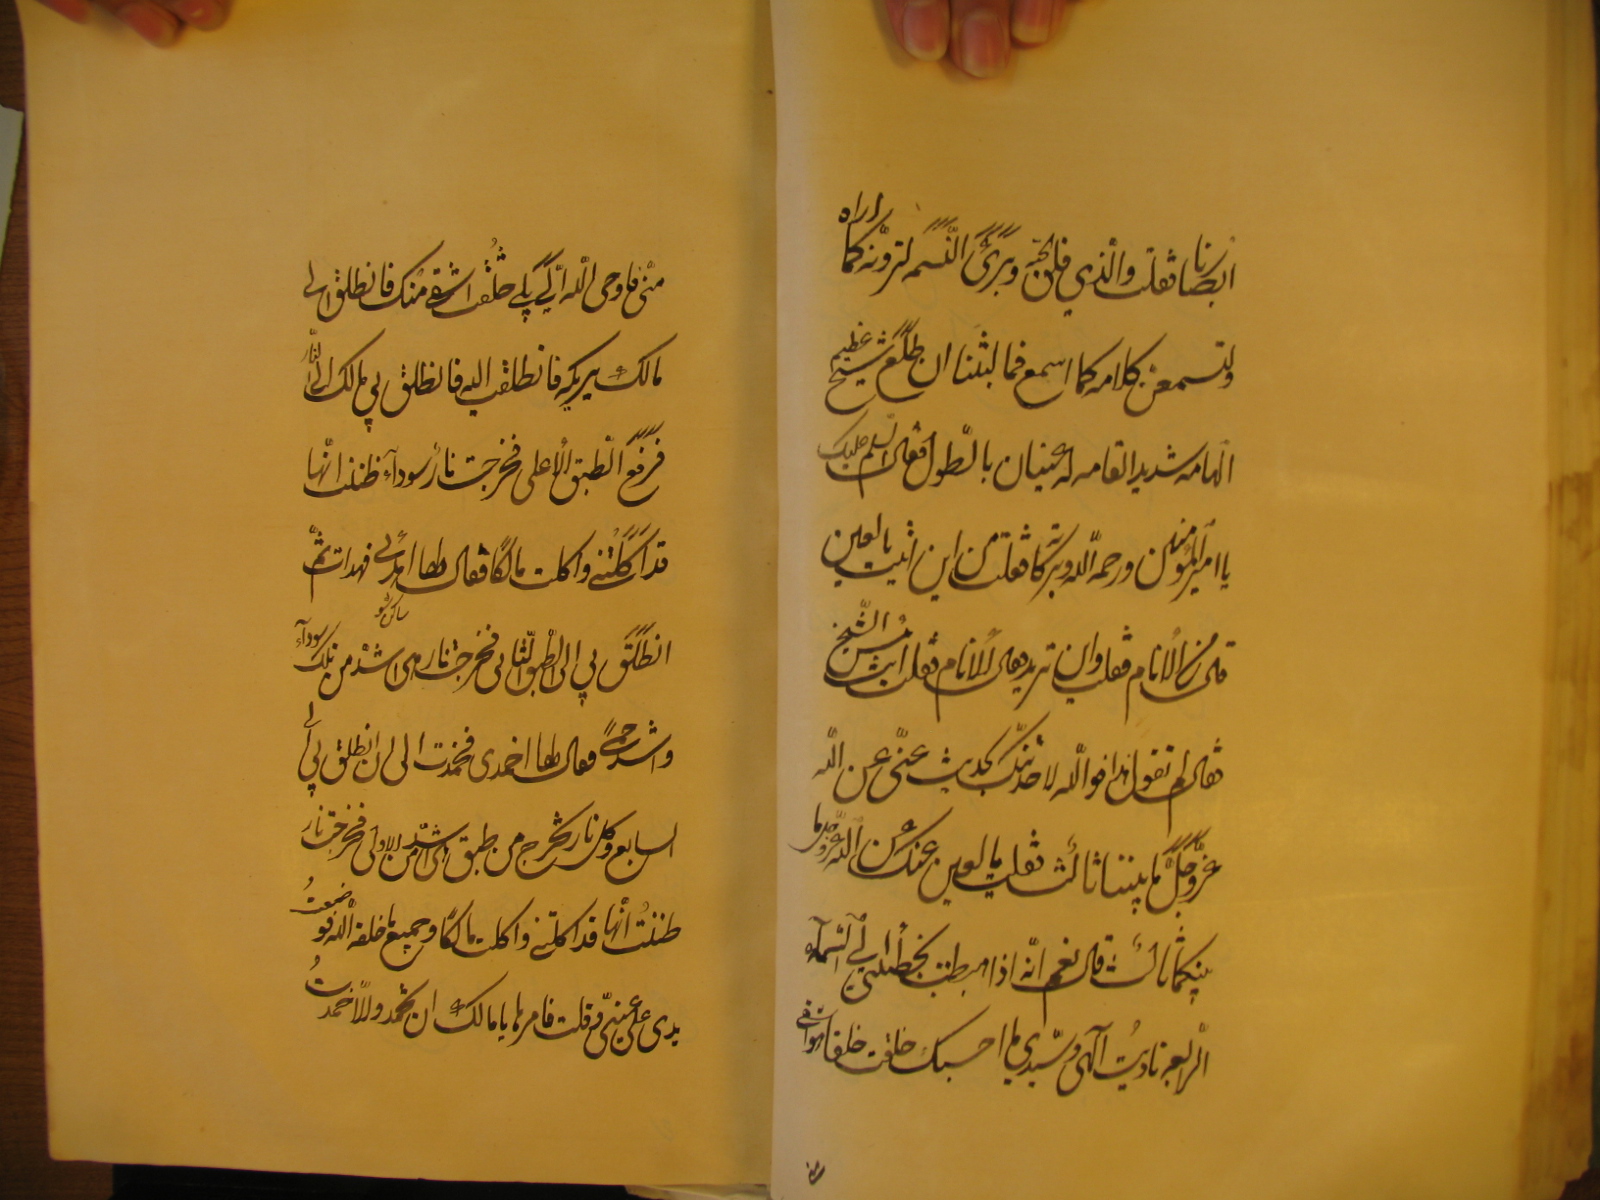 ابصارنا فقلت والذي فلق الحبّة وبرئ النّسمه لترونّه كما اراه
ولتسمعنّ كلامه كما اسمع فما لبثنا ان طلع شيخ عظيم
الهامه شديد القامه له عينان بالطول فقال السّلم عليك
يا امير المؤمنين ورحمة اللّه وبركاته فقلت من اين اتيت يا لعين
قال من الانام فقلت واين تريد قال الانام فقلت بئس الشّيخ
فقال لم تقول هذا فو اللّه لاحدّثنّك بحديث عنّي عن اللّه
عزّ وجلّ ما بيننا ثالث فقلت يا لعين عنك عن اللّه عزّوجل ما
بينكما ثالث قال نعم انّه اذا هبطت بخطيئتي الى السّمآء
الرّابعه ناديت آلهي وسيّدي ما احسبك خلقت خلقا هو اشقى
منّي فاوحى اللّه اليّ بلى خلقت اشقى منك فانطلق الى
مالك يريكه فانطلقت اليه فانطلق بي مالك الى النّار
فرفع الطّبق الاعلى فخرجت نار سودآء ظننت انّها
قد اكلتني واكلت مالكا فقال لها اهدئي فهدات ثمّ
ساكن شو
انطلق بي الى الطّبق الثاني فخرجت نار هي اشدّ من تلك سودآء
واشد حمى فقال لها اخمدي فخمدت الى ان انطلق بي الى
السابع وكل نار تخرج من طبق هي اشدّ من الاولى فخرجت نار
ظننت انّها قد اكلتني واكلت مالكا وجميع ما خلقه اللّه فوضعت
يدي على عيني وقلت فامرها يا مالك ان تخمد والّا خمدت